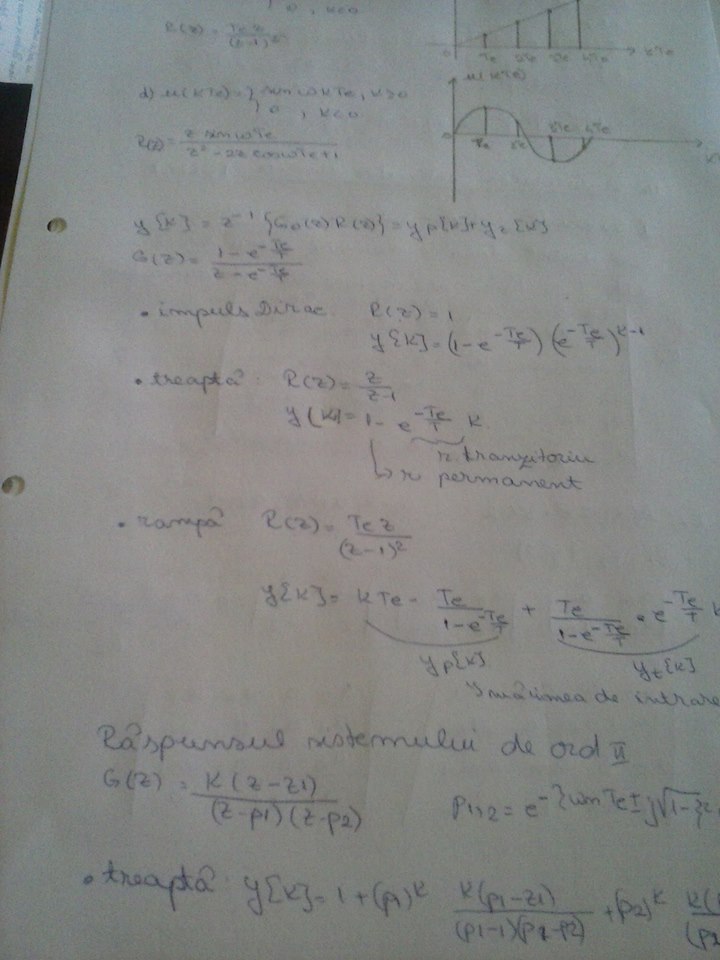 0, k<0
R(z) = Te z / (z-1)²
0 Te 2Te 3Te 4Te kTe
d) u(kTe) = { sin ωkTe, k≥0
0, k<0
u(kTe)
R(z) = z sin ωTe / z² - 2z cos ωTe + 1
0 Te
y[k] = z⁻¹ {G₀(z) R(z)} = yp[k] + yt[k]
G(z) = 1 - e^(-Te/T) / z - e^(-Te/T)
• impuls Dirac R(z) = 1
y[k] = (1 - e^(-Te/T)) (e^(-Te/T))^(k-1)
• treaptă: R(z) = z / z-1
y[k] = 1 - e^(-Te/T) k
r. tranzitoriu
↳ r. permanent
• rampă R(z) = Te z / (z-1)²
y[k] = kTe - Te / 1 - e^(-Te/T) + Te / 1 - e^(-Te/T) · e^(-Te/T) k
yp[k] yt[k]
mărimea de intrare
Răspunsul sistemului de ord II
G(z) = K(z-z1) / (z-p1)(z-p2) p1,2 = e^-ξωnTe ± j√1-ξ
• treaptă y[k] = 1 + (p1)^k K(p1-z1) / (p1-1)(p1-p2) + (p2)^k K( / (p2